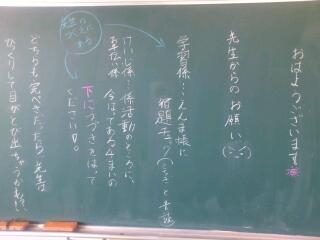 おはようございます
先生からのお願い
学習係…えんま様に
宿題チェック
先生の
つくえに
ある
けいじ係…係活動のところに、
今はってある4まいの
下につづきをはって
ください。
どちらも完ぺきだったら先生は
びっくりして目がとび出ちゃうかも!